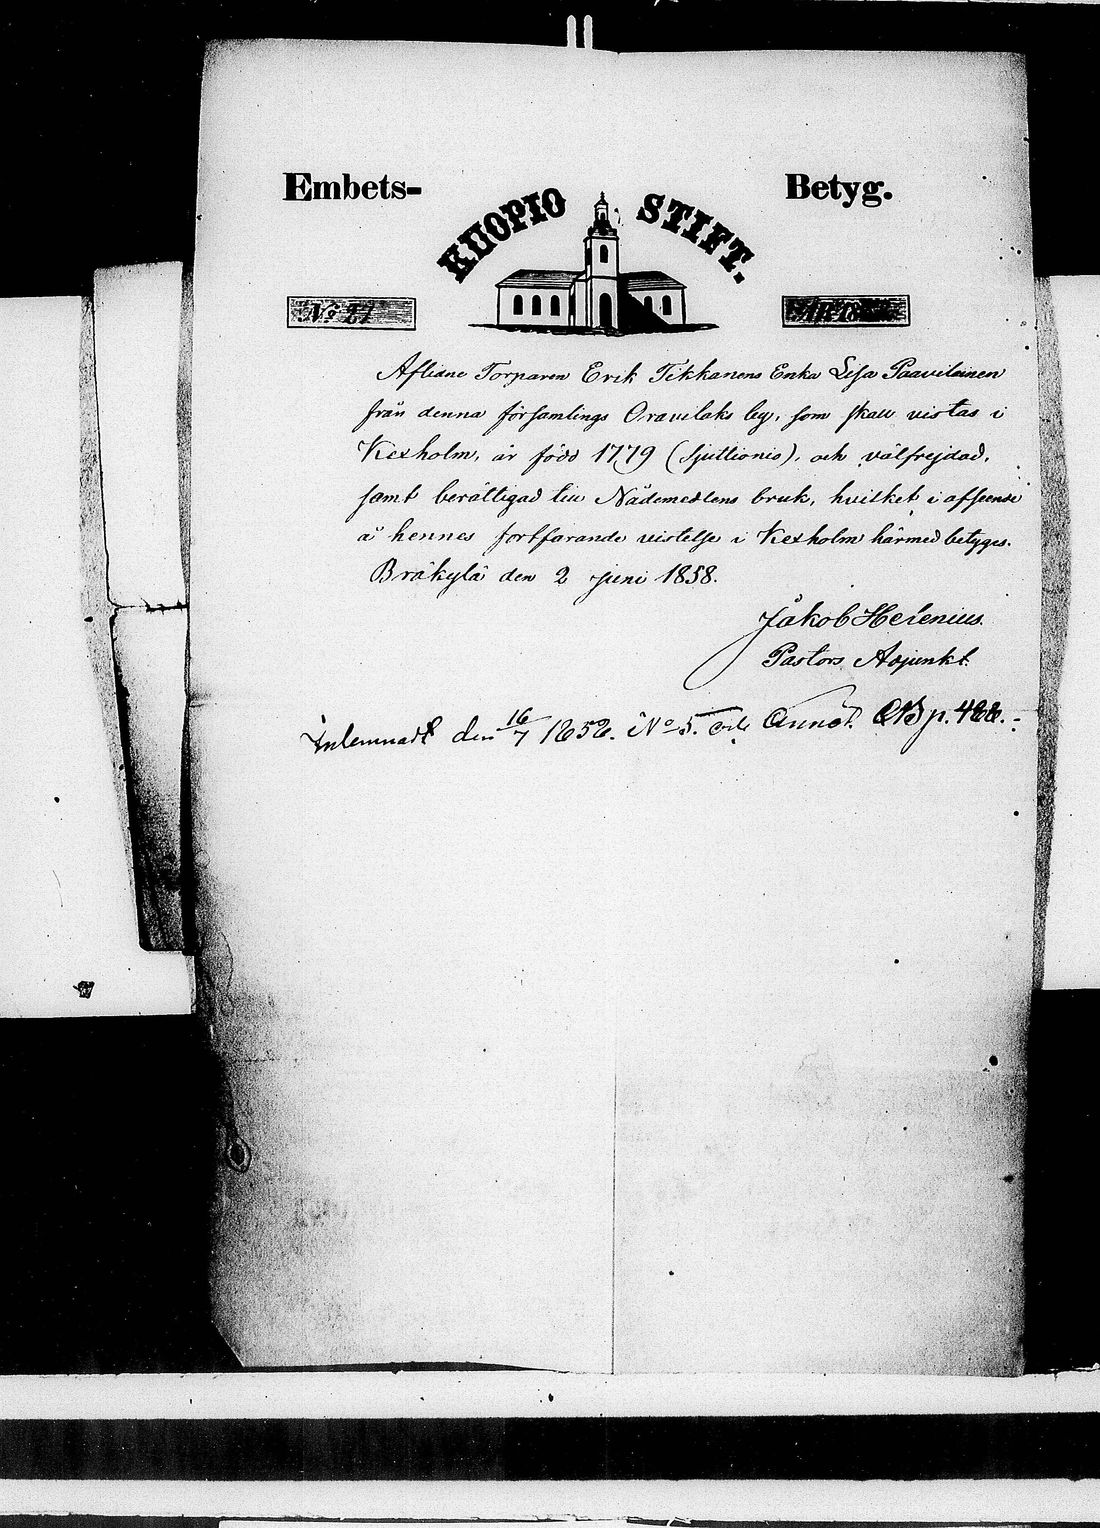 Embets- Betyg.
KUOPIO STIFT.
No 21
Aflidne Torparen Erik Tikkanens Enka Lisa Paavilainen
från denna församlings Oravilaks by, som skall vistas i
Kexholm, är född 1779 (sjuttionio), och välfrejdad,
samt berättigad till Nådemedlens bruk, hvilket i afseende
å hennes fortfarande vistelse i Kexholm härmed betyges.
Bräkylä den 2 juni 1858.
Jakob Helenius
Pastors Adjunkt
Inlemnadt den 16/7 1858. No 5. och Annot. p. 488.